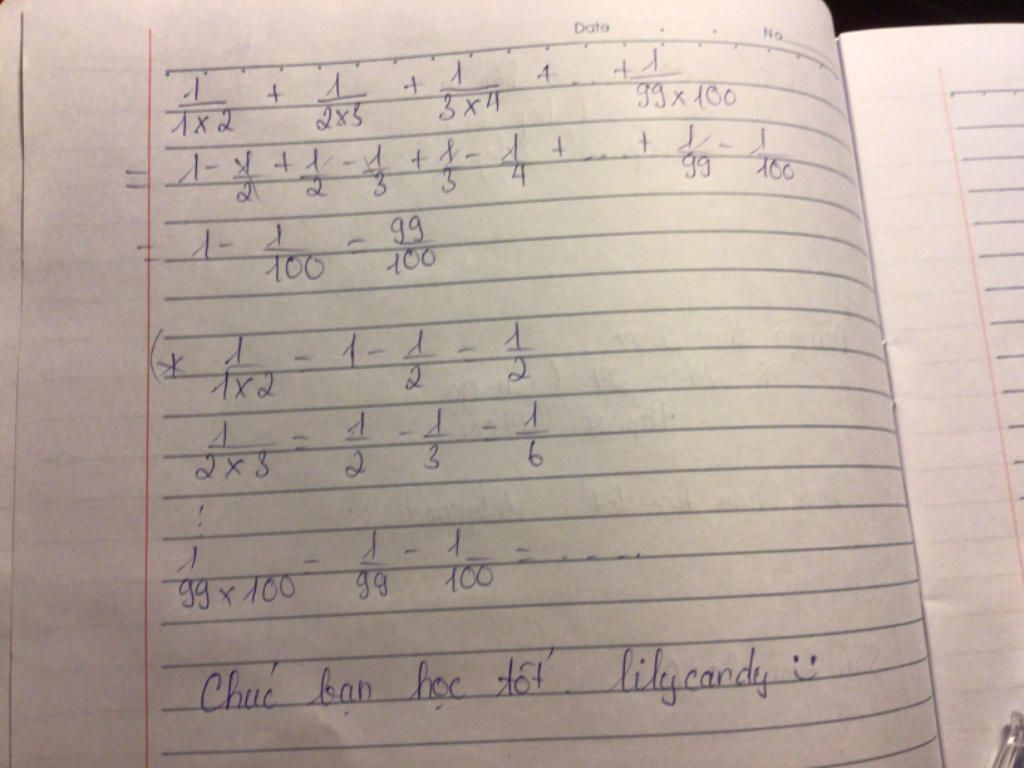 Date No
1/(1×2) + 1/(2×3) + 1/(3×4) + ... + 1/(99×100)
= 1 - 1/2 + 1/2 - 1/3 + 1/3 - 1/4 + ... + 1/99 - 1/100
= 1 - 1/100 = 99/100
(* 1/(1×2) = 1 - 1/2 = 1/2
1/(2×3) = 1/2 - 1/3 = 1/6
⋮
1/(99×100) = 1/99 - 1/100 = ....
Chúc bạn học tốt. lilycandy :)